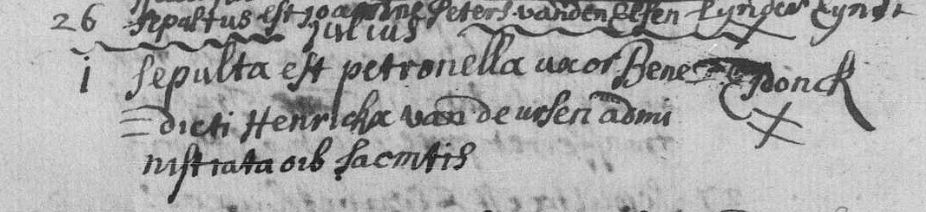 26 sepultus est Joannes Peters vanden Elsen Lynder Eynde
Julius
1 sepulta est petronella uxor Bene donck
= dicti Henrickx van deursen admi
nistrata oib sacmtis